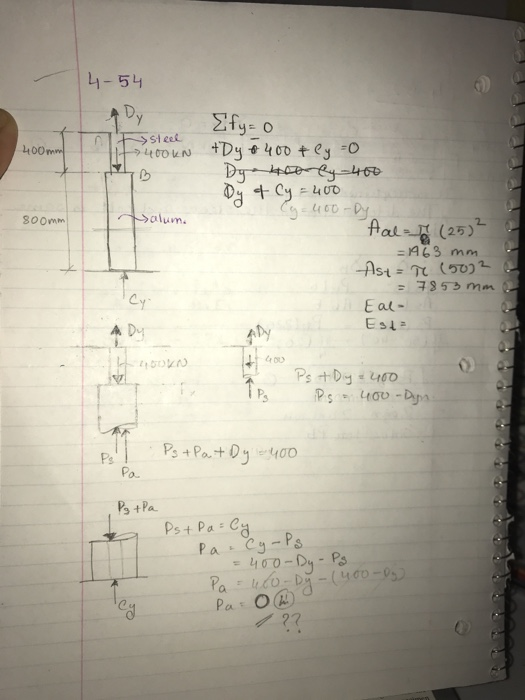 4-54
Dy
steel
400 kN
400mm
B
800mm
alum.
Cy
Σfy = 0
+Dy - 400 + Cy = 0
Dy - 400 - Cy - 400
Dy + Cy = 400
Cy = 400 - Dy
Aal = π (25)²
= 1963 mm
Ast = π (50)²
= 7853 mm
Eal =
Est =
Dy
400kN
Ps
Pa
Ps + Pa + Dy = 400
Dy
400
Ps
Ps + Dy = 400
Ps = 400 - Dy
Ps + Pa
Cy
Ps + Pa = Cy
Pa = Cy - Ps
= 400 - Dy - Ps
Pa = 400 - Dy - (400 - Dy)
Pa = 0
??